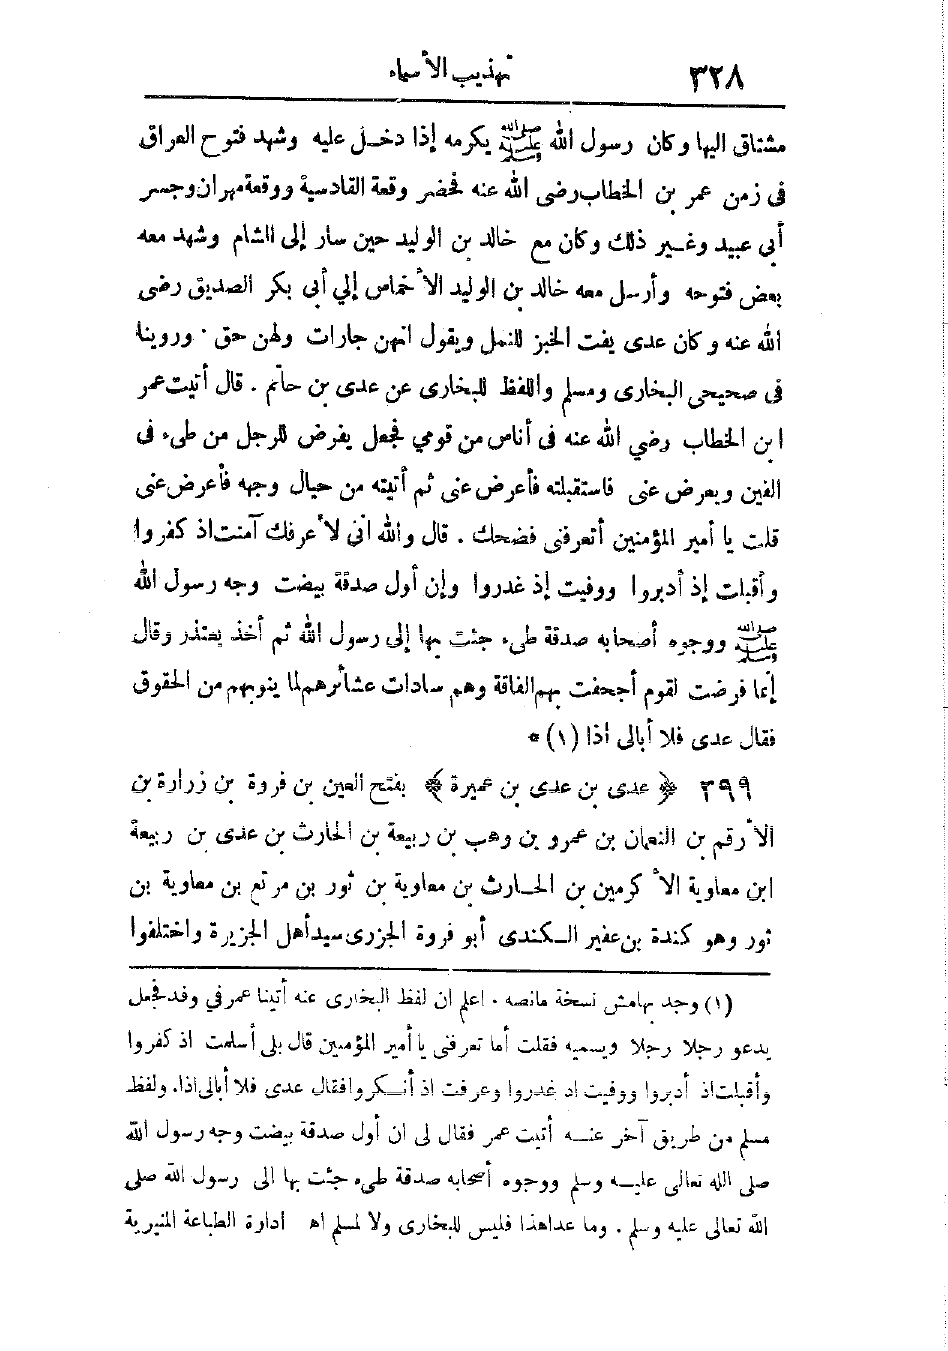 ٣٢٨
تهذيب الأسماء
مشتاق اليها وكان رسول الله ﷺ يكرمه إذا دخل عليه وشهد فتوح العراق
فى زمن عمر بن الخطاب رضى الله عنه فحضر وقعة القادسية ووقعة مهران وجسر
أبي عبيد وغير ذلك وكان مع خالد بن الوليد حين سار إلى الشام وشهد معه
بعض فتوحه وأرسل معه خالد بن الوليد الأخماس إلي أبى بكر الصديق رضى
الله عنه وكان عدى يفت الخبز للنمل ويقول انهن جارات ولهن حق ٠ وروينا
فى صحيحى البخارى ومسلم واللفظ للبخارى عن عدى بن حاتم . قال أتيت عمر
ابن الخطاب رضي الله عنه فى أناس من قومي فجعل يفرض للرجل من طىء فى
الفين ويعرض عنى فاستقبلته فأعرض عنى ثم أتيته من حيال وجهه فأعرض عنى
قلت يا أمير المؤمنين أتعرفنى فضحك . قال والله انى لأعرفك آمنت اذ كفروا
وأقبلت إذ أدبروا ووفيت إذ غدروا وإن أول صدقة بيضت وجه رسول الله
ﷺ ووجوه أصحابه صدقة طىء جئت بها إلى رسول الله ثم أخذ يعتذر وقال
إنما فرضت لقوم أجحفت بهم الفاقة وهم سادات عشائرهم لما ينوبهم من الحقوق
فقال عدى فلا أبالى اذا (١) *
٣٩٩ ﴿ عدى بن عدى بن عميرة ﴾ بفتح العين بن فروة بن زرارة بن
الأرقم بن النعمان بن عمرو بن وهب بن ربيعة بن الحارث بن عدى بن ربيعة
ابن معاوية الأكرمين بن الحارث بن معاوية بن ثور بن مرتع بن معاوية بن
ثور وهو كندة بن عفير الكندى أبو فروة الجزرى سيد أهل الجزيرة واختلفوا
(١) وجد بهامش نسخة مانصه ٠ اعلم ان لفظ البخارى عنه أتينا عمر في وفد فجعل
يدعو رجلا رجلا ويسميه فقلت أما تعرفنى يا أمير المؤمنين قال بلى أسلمت اذ كفروا
وأقبلت اذ أدبروا ووفيت اد غدروا وعرفت اذ أنكروا فقال عدى فلا أبالى اذا. ولفظ
مسلم من طريق آخر عنه أتيت عمر فقال لى ان أول صدقة بيضت وجه رسول الله
صلى الله تعالى عليه وسلم ووجوه أصحابه صدقة طىء جئت بها الى رسول الله صلى
الله تعالى عليه وسلم . وما عدا هذا فليس للبخارى ولا لمسلم اهـ ادارة الطباعة المنيرية